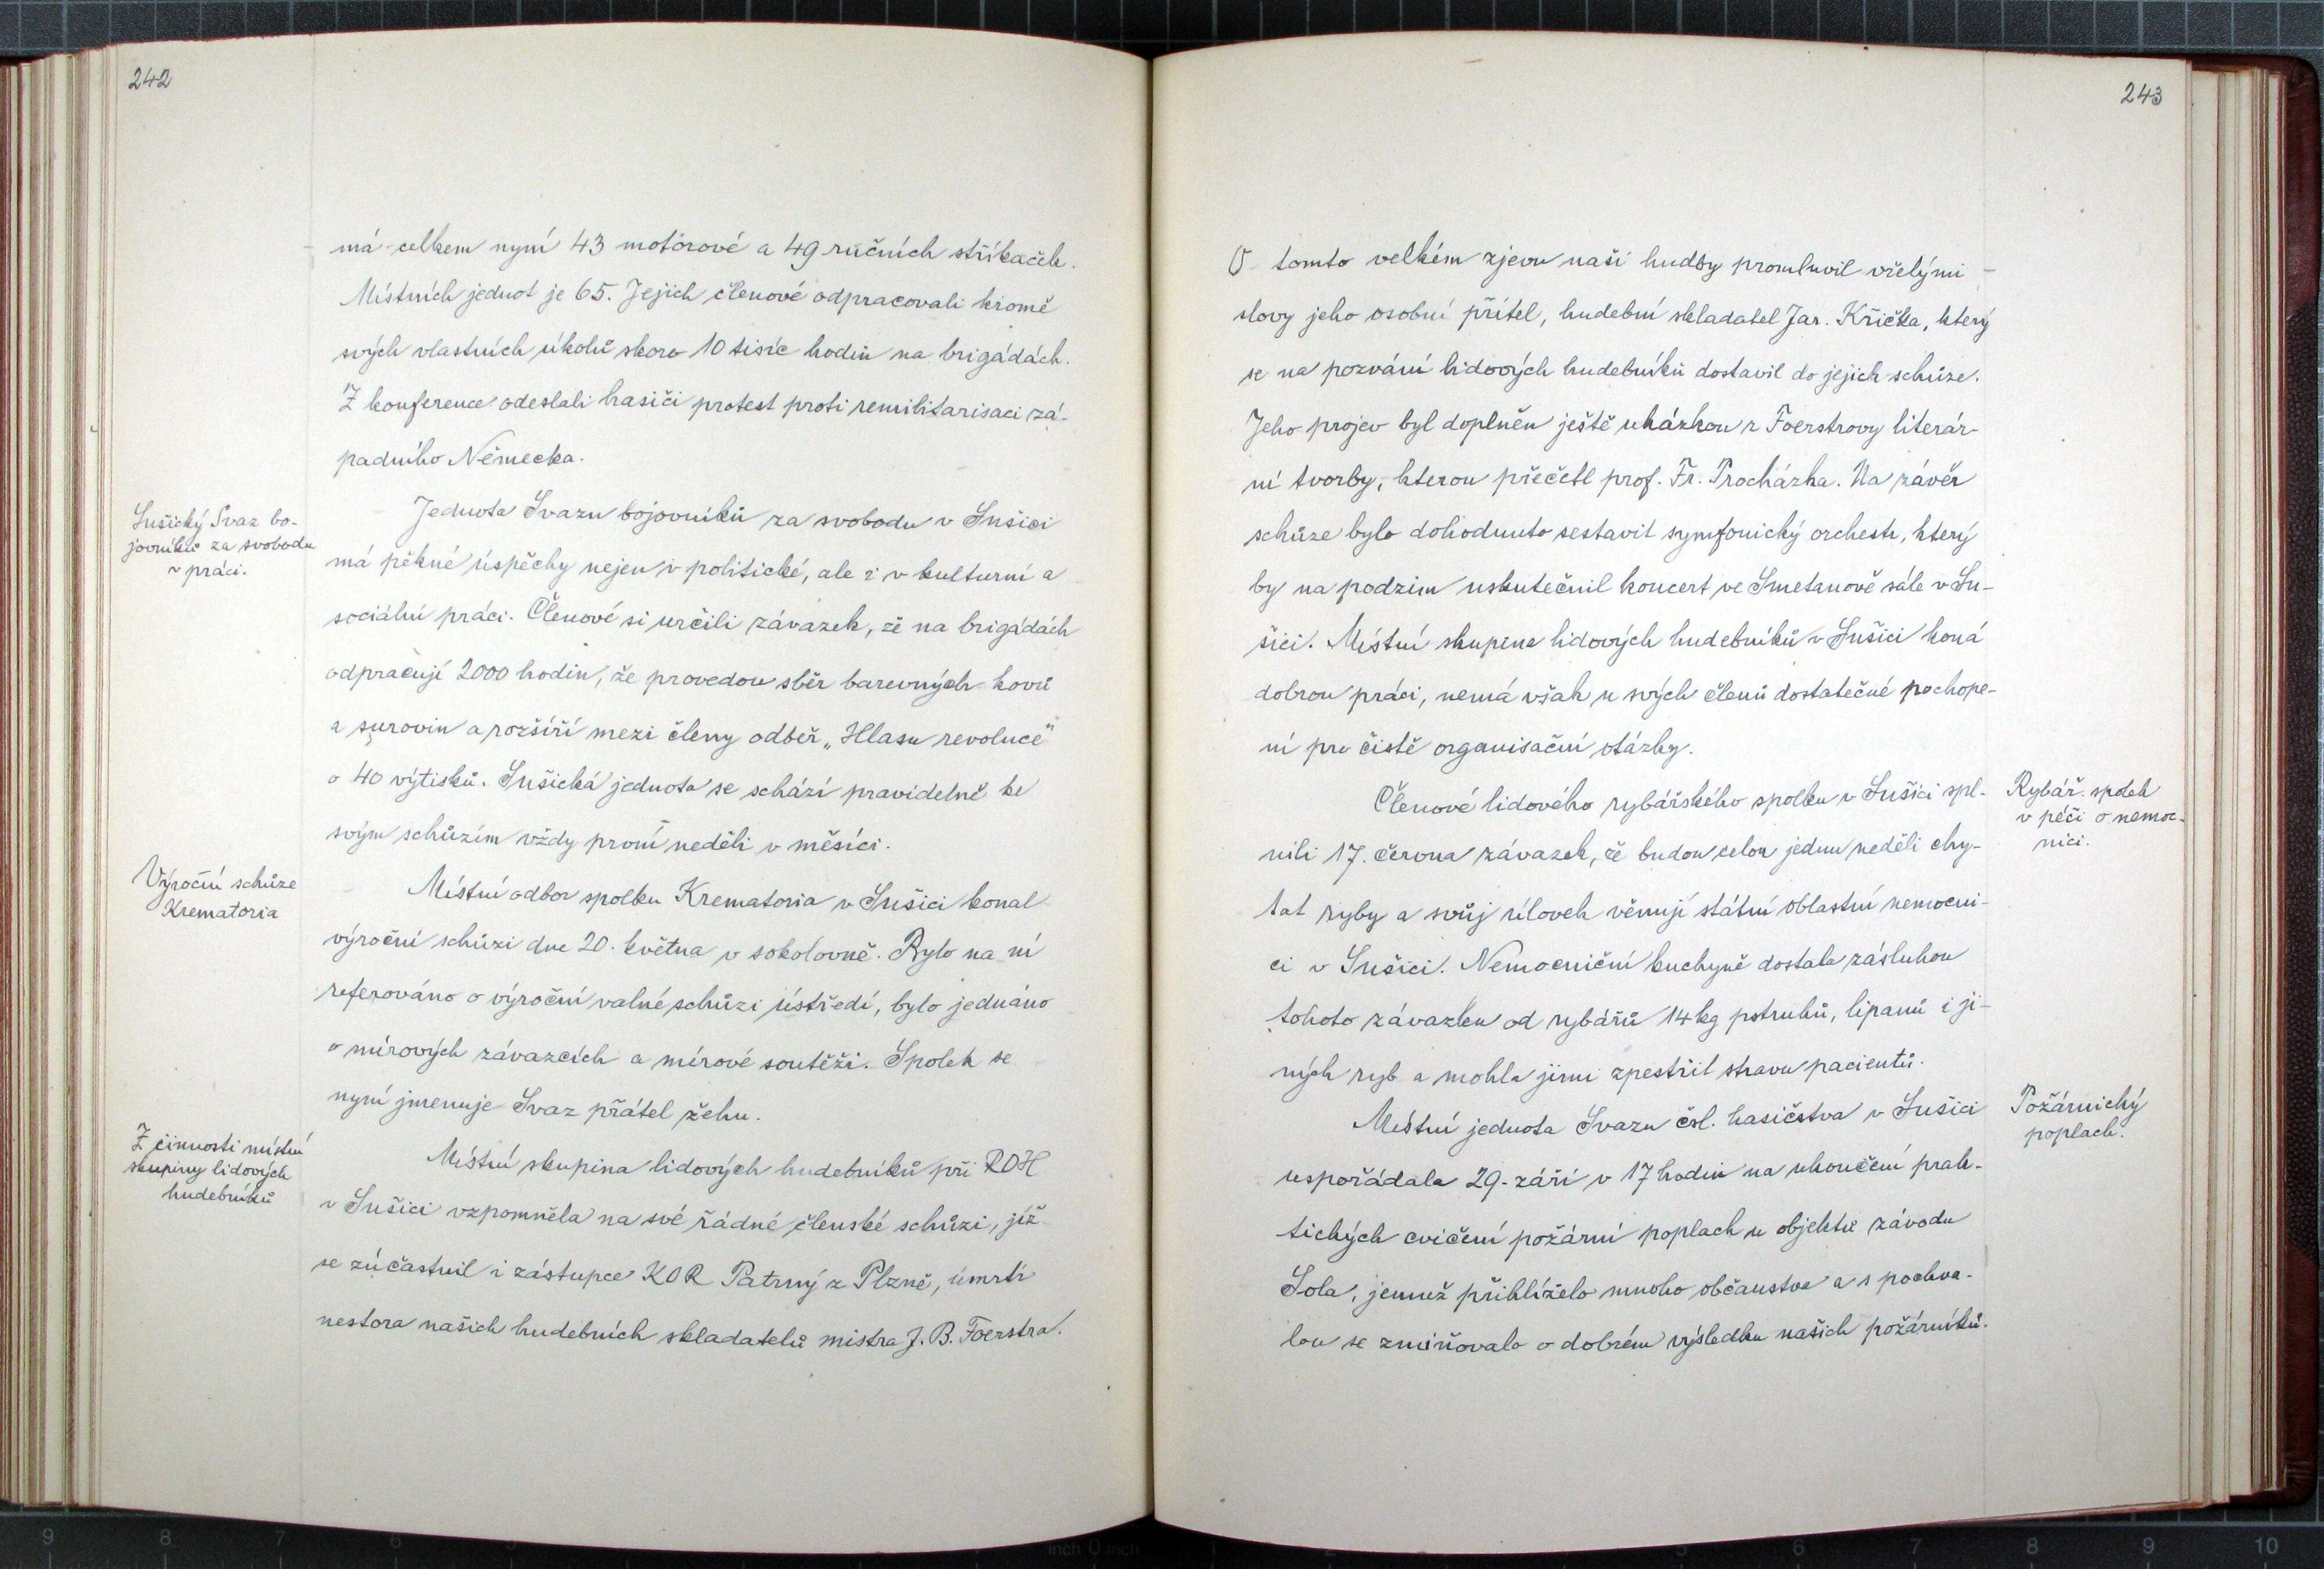 242
má celkem nyní 43 motorové a 49 ručních stříkaček.
Místních jednot je 65. Jejich členové odpracovali kromě
svých vlastních úkolů skoro 10 tisíc hodin na brigádách.
Z konference odeslali hasiči protest proti remilitarisaci zá-
padního Německa.
Sušický Svaz bo-
jovníků za svobodu
v práci.
Jednota Svazu bojovníků za svobodu v Sušici
má pěkné úspěchy nejen v politické, ale i v kulturní a
sociální práci. Členové si určili závazek, že na brigádách
odpracují 2000 hodin, že provedou sběr barevných kovů
a surovin a rozšíří mezi členy odběr „Hlasu revoluce"
o 40 výtisků. Sušická jednota se schází pravidelně ke
svým schůzím vždy první neděli v měsíci.
Výroční schůze
Krematoria
Místní odbor spolku Krematoria v Sušici konal
výroční schůzi dne 20. května v sokolovně. Bylo na ní
referováno o výroční valné schůzi ústředí, bylo jednáno
o mírových závazcích a mírové soutěži. Spolek se
nyní jmenuje Svaz přátel žehu.
Z činnosti místní
skupiny lidových
hudebníků
Místní skupina lidových hudebníků při ROH
v Sušici vzpomněla na své řádné členské schůzi, jíž
se zúčastnil i zástupce KOR Patrný z Plzně, úmrtí
nestora našich hudebních skladatelů mistra J. B. Foerstra.
243
O tomto velkém zjevu naší hudby promluvil vřelými
slovy jeho osobní přítel, hudební skladatel Jar. Křička, který
se na pozvání lidových hudebníků dostavil do jejich schůze.
Jeho projev byl doplněn ještě ukázkou z Foerstrovy literár-
ní tvorby, kterou přečetl prof. Fr. Procházka. Na závěr
schůze bylo dohodnuto sestavit symfonický orchestr, který
by na podzim uskutečnil koncert ve Smetanově sále v Su-
šici. Místní skupina lidových hudebníků v Sušici koná
dobrou práci, nemá však u svých členů dostatečné pochope-
ní pro čistě organisační otázky.
Rybář. spolek
v péči o nemoc-
nici.
Členové lidového rybářského spolku v Sušici spl-
nili 17. června závazek, že budou celou jednu neděli chy-
tat ryby a svůj úlovek věnují státní oblastní nemocni-
ci v Sušici. Nemocniční kuchyně dostala zásluhou
tohoto závazku od rybářů 14 kg pstruhů, lipanů i ji-
ných ryb a mohla jimi zpestřit stravu pacientů.
Požárnický
poplach.
Místní jednota Svazu čsl. hasičstva v Sušici
uspořádala 29. září v 17 hodin na ukončení prak-
tických cvičení požární poplach u objektu závodu
Sola, jemuž přihlíželo mnoho občanstva a s pochva-
lou se zmiňovalo o dobrém výsledku našich požárníků.